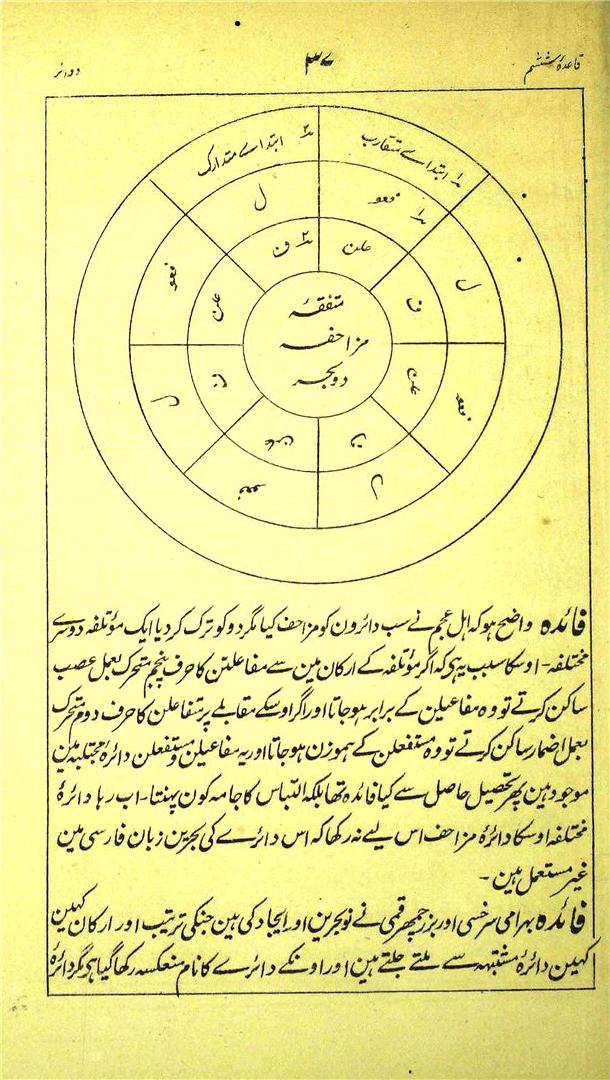 قاعدۂ ششم
۳۷
دوائر
۱ ابتداے متقارب
۲ ابتداے متدارک
۱ فعو
ل
فعو
ل
فعو
ل
فعو
ل
علن
ف
علن
ف
علن
ف
علن
۲ ف
متفقہ
مزاحفہ
دو بحریہ
فائدہ واضح ہو کہ اہل عجم نے سب دائرون کو مزاحف کیا مگر دو کو ترک کر دیا ایک مؤتلفہ دوسرے
مختلفہ۔ اوسکا سبب یہی کہ اگر مؤتلفہ کے ارکان مین سے مفاعلتن کا حرف پنجم متحرک بعمل عصب
ساکن کرتے تو وہ مفاعیلن کے برابر ہو جاتا اور اگر اوسکے مقابلے پر متفاعلن کا حرف دوم متحرک
بعمل اضمار ساکن کرتے تو وہ مستفعلن کے ہموزن ہو جاتا اور یہ مفاعیلن و مستفعلن دائرۂ مجتلبہ مین
موجود ہین پھر تحصیل حاصل سے کیا فائدہ تھا بلکہ التباس کا جامہ کون پہنتا۔ اب رہا دائرۂ
مختلفہ اوسکا دائرۂ مزاحف اس لیے نہ رکھا کہ اس دائرے کی بحرین زبان فارسی مین
غیر مستعمل ہین۔
فائدہ بہرامی سرخسی اور بزرجمہر قمی نے نو بحرین اور ایجاد کی ہین جنکی ترتیب اور ارکان کہین
کہین دائرۂ مشتبہہ سے ملتے جلتے ہین اور اونکے دائرے کا نام منعکسہ رکھا گیا ہی مگر دائرۂ